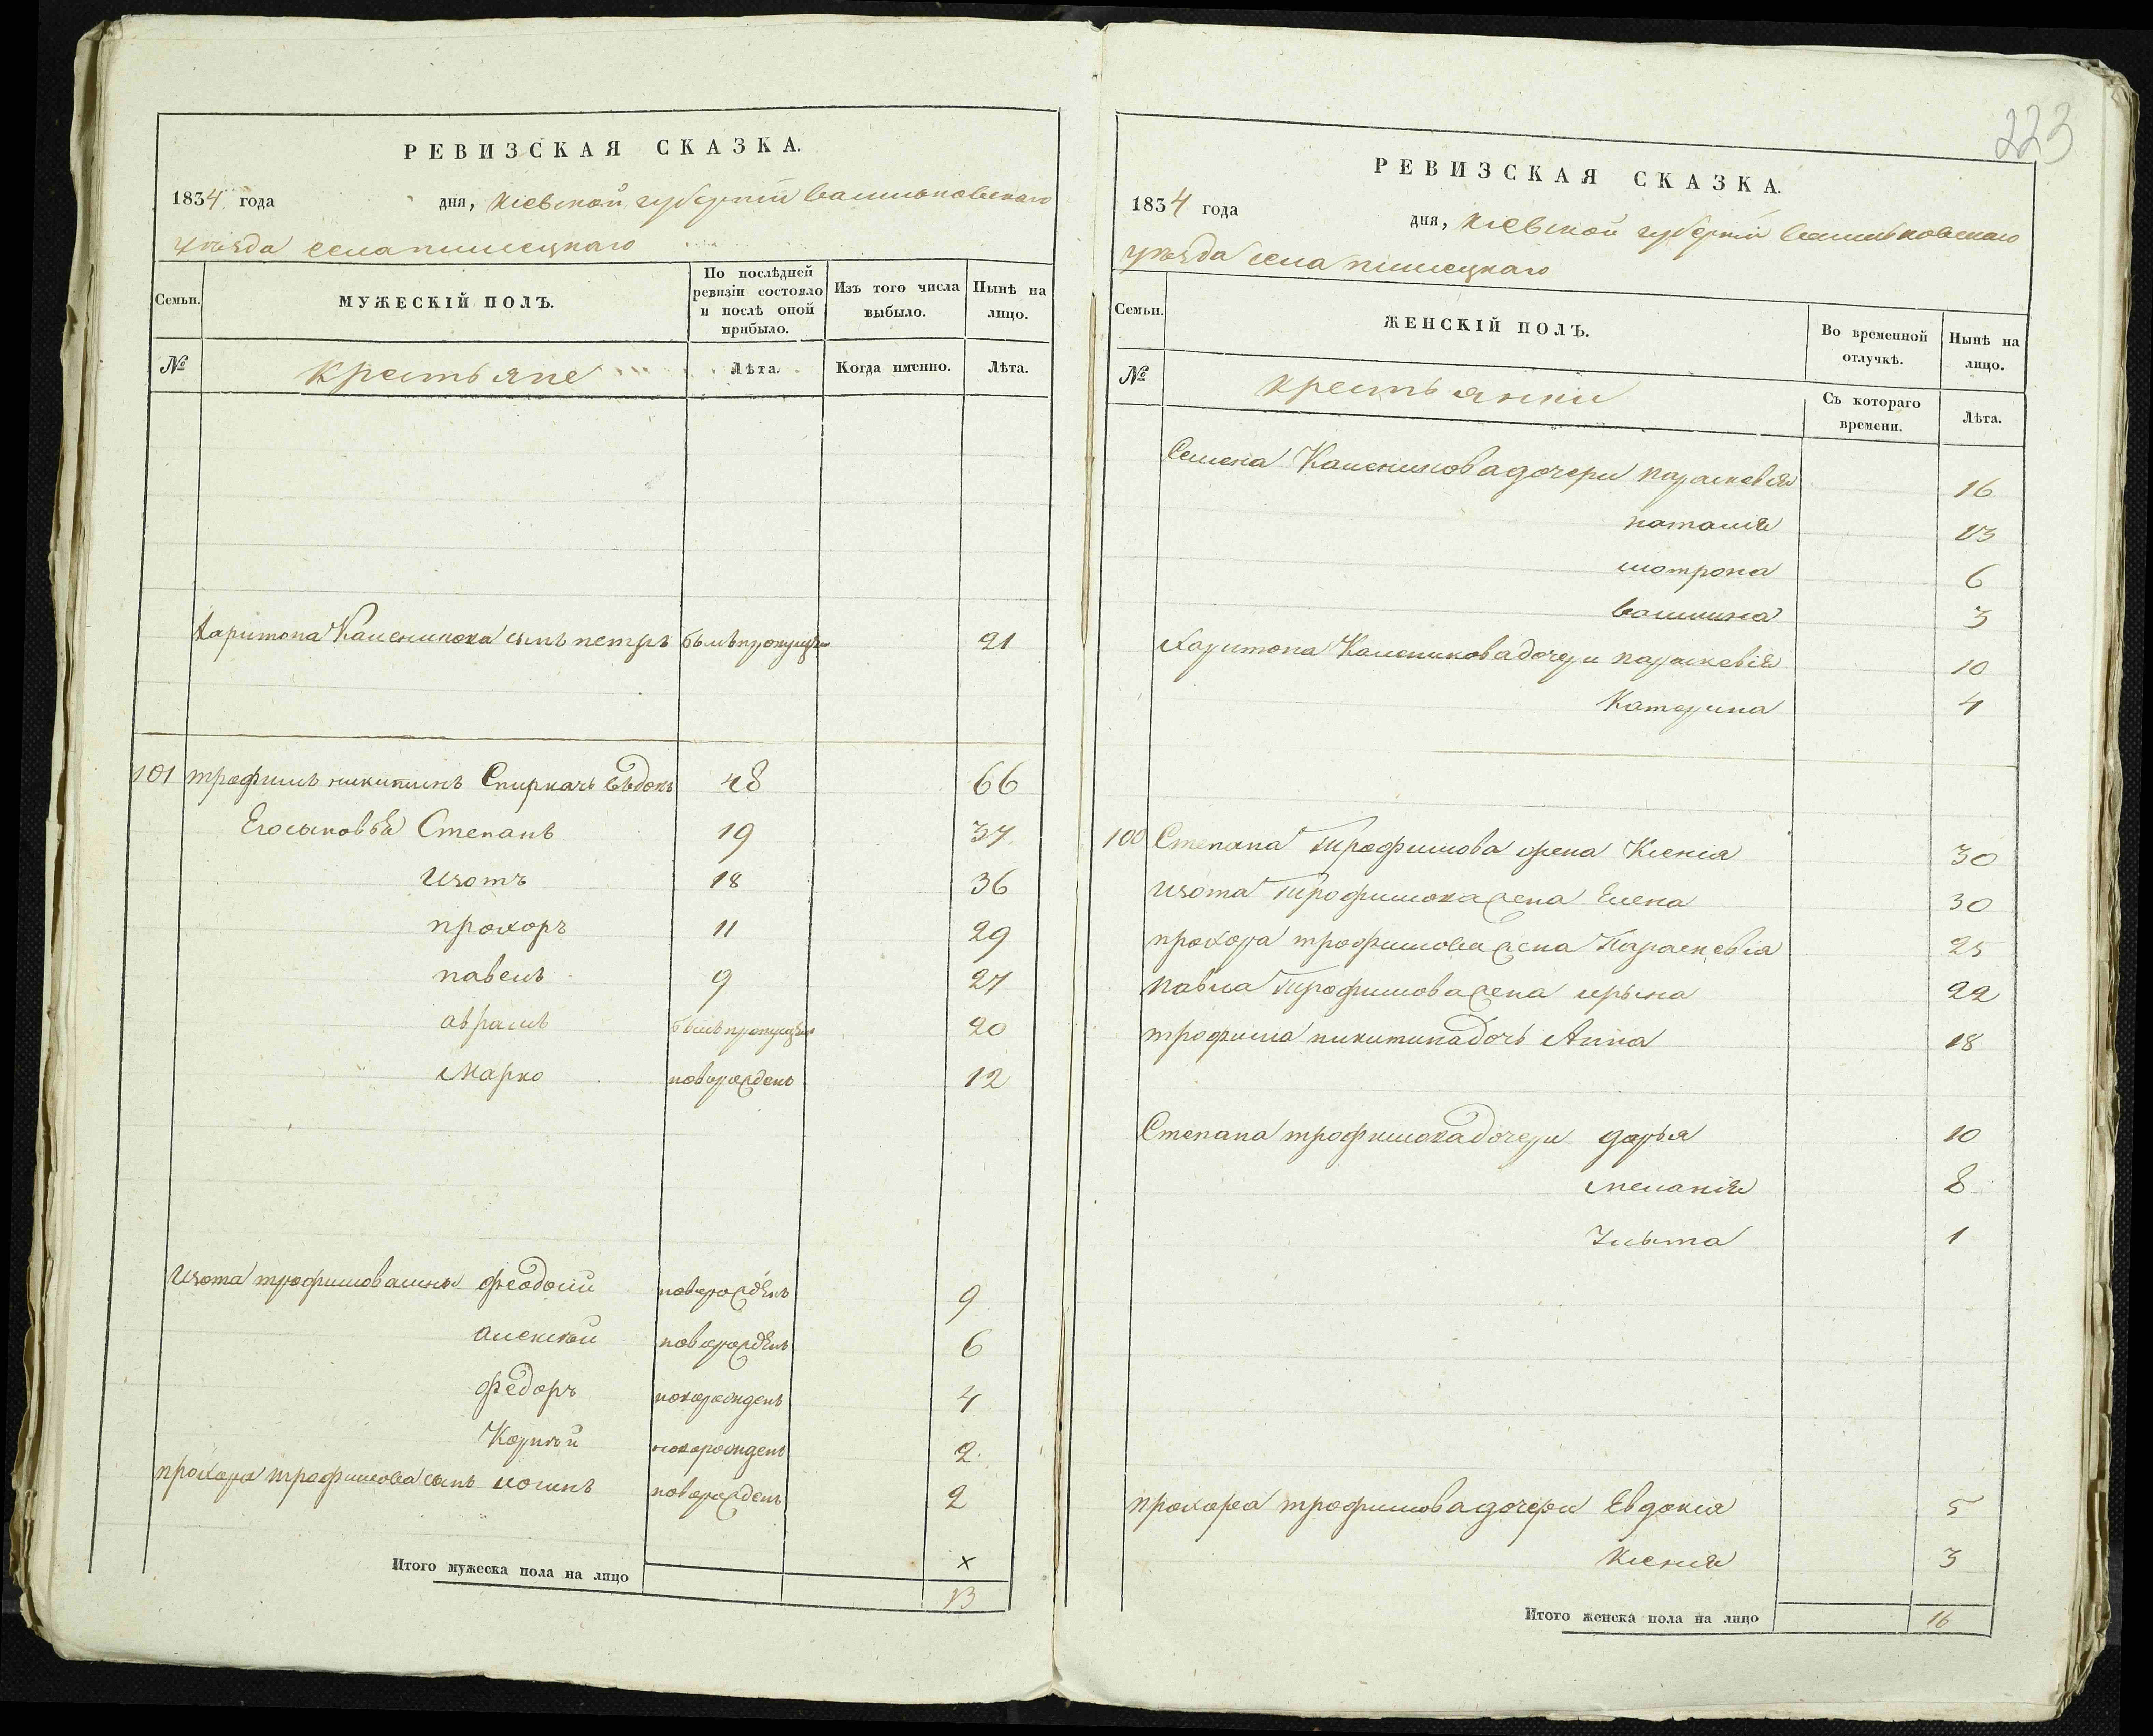 РЕВИЗСКАЯ СКАЗКА.
1834 года дня, Кіевской губерніи Васильковскаго
уѣзда села
Семьи. МУЖЕСКІЙ ПОЛЪ. По послѣдней ревизіи состояло и послѣ оной прибыло. Изъ того числа выбыло. Нынѣ на лицо.
№ крестьяне Лѣта. Когда именно. Лѣта.
Харитона сынъ петръ былъ 21
101 трофимъ никитинъ Спиркачъ вдовъ 48 66
Его сыновья Степанъ 19 37
Изотъ 18 36
прохоръ 11 29
павелъ 9 27
аврамъ былъ 20
Марко новорожденъ 12
Изота трофимова сыны феодосій новорожденъ 9
алексѣй новорожденъ 6
федоръ новорожденъ 4
Корнѣй новорожденъ 2
прохора трофимова сынъ новорожденъ 2
x
Итого мужеска пола на лицо 13
223
РЕВИЗСКАЯ СКАЗКА.
1834 года дня, Кіевской губерніи Васильковскаго
уѣзда села
Семьи. ЖЕНСКІЙ ПОЛЪ. Во временной отлучкѣ. Нынѣ на лицо.
№ крестьянки Съ котораго времени. Лѣта.
Семена дочери параскевія 16
наталія 13
мотрона 6
3
Харитона дочери параскевія 10
Катерина 4
100 Степана Трофимова жена Ксенія 30
Изота Трофимова жена Елена 30
прохора трофимова жена Параскевіа 25
павла Трофимова жена ирына 22
трофима никитина дочь Анна 18
Степана трофимова дочери дарья 10
меланія 8
1
прохора трофимова дочери Евдокіа 5
Ксенія 3
Итого женска пола на лицо 16